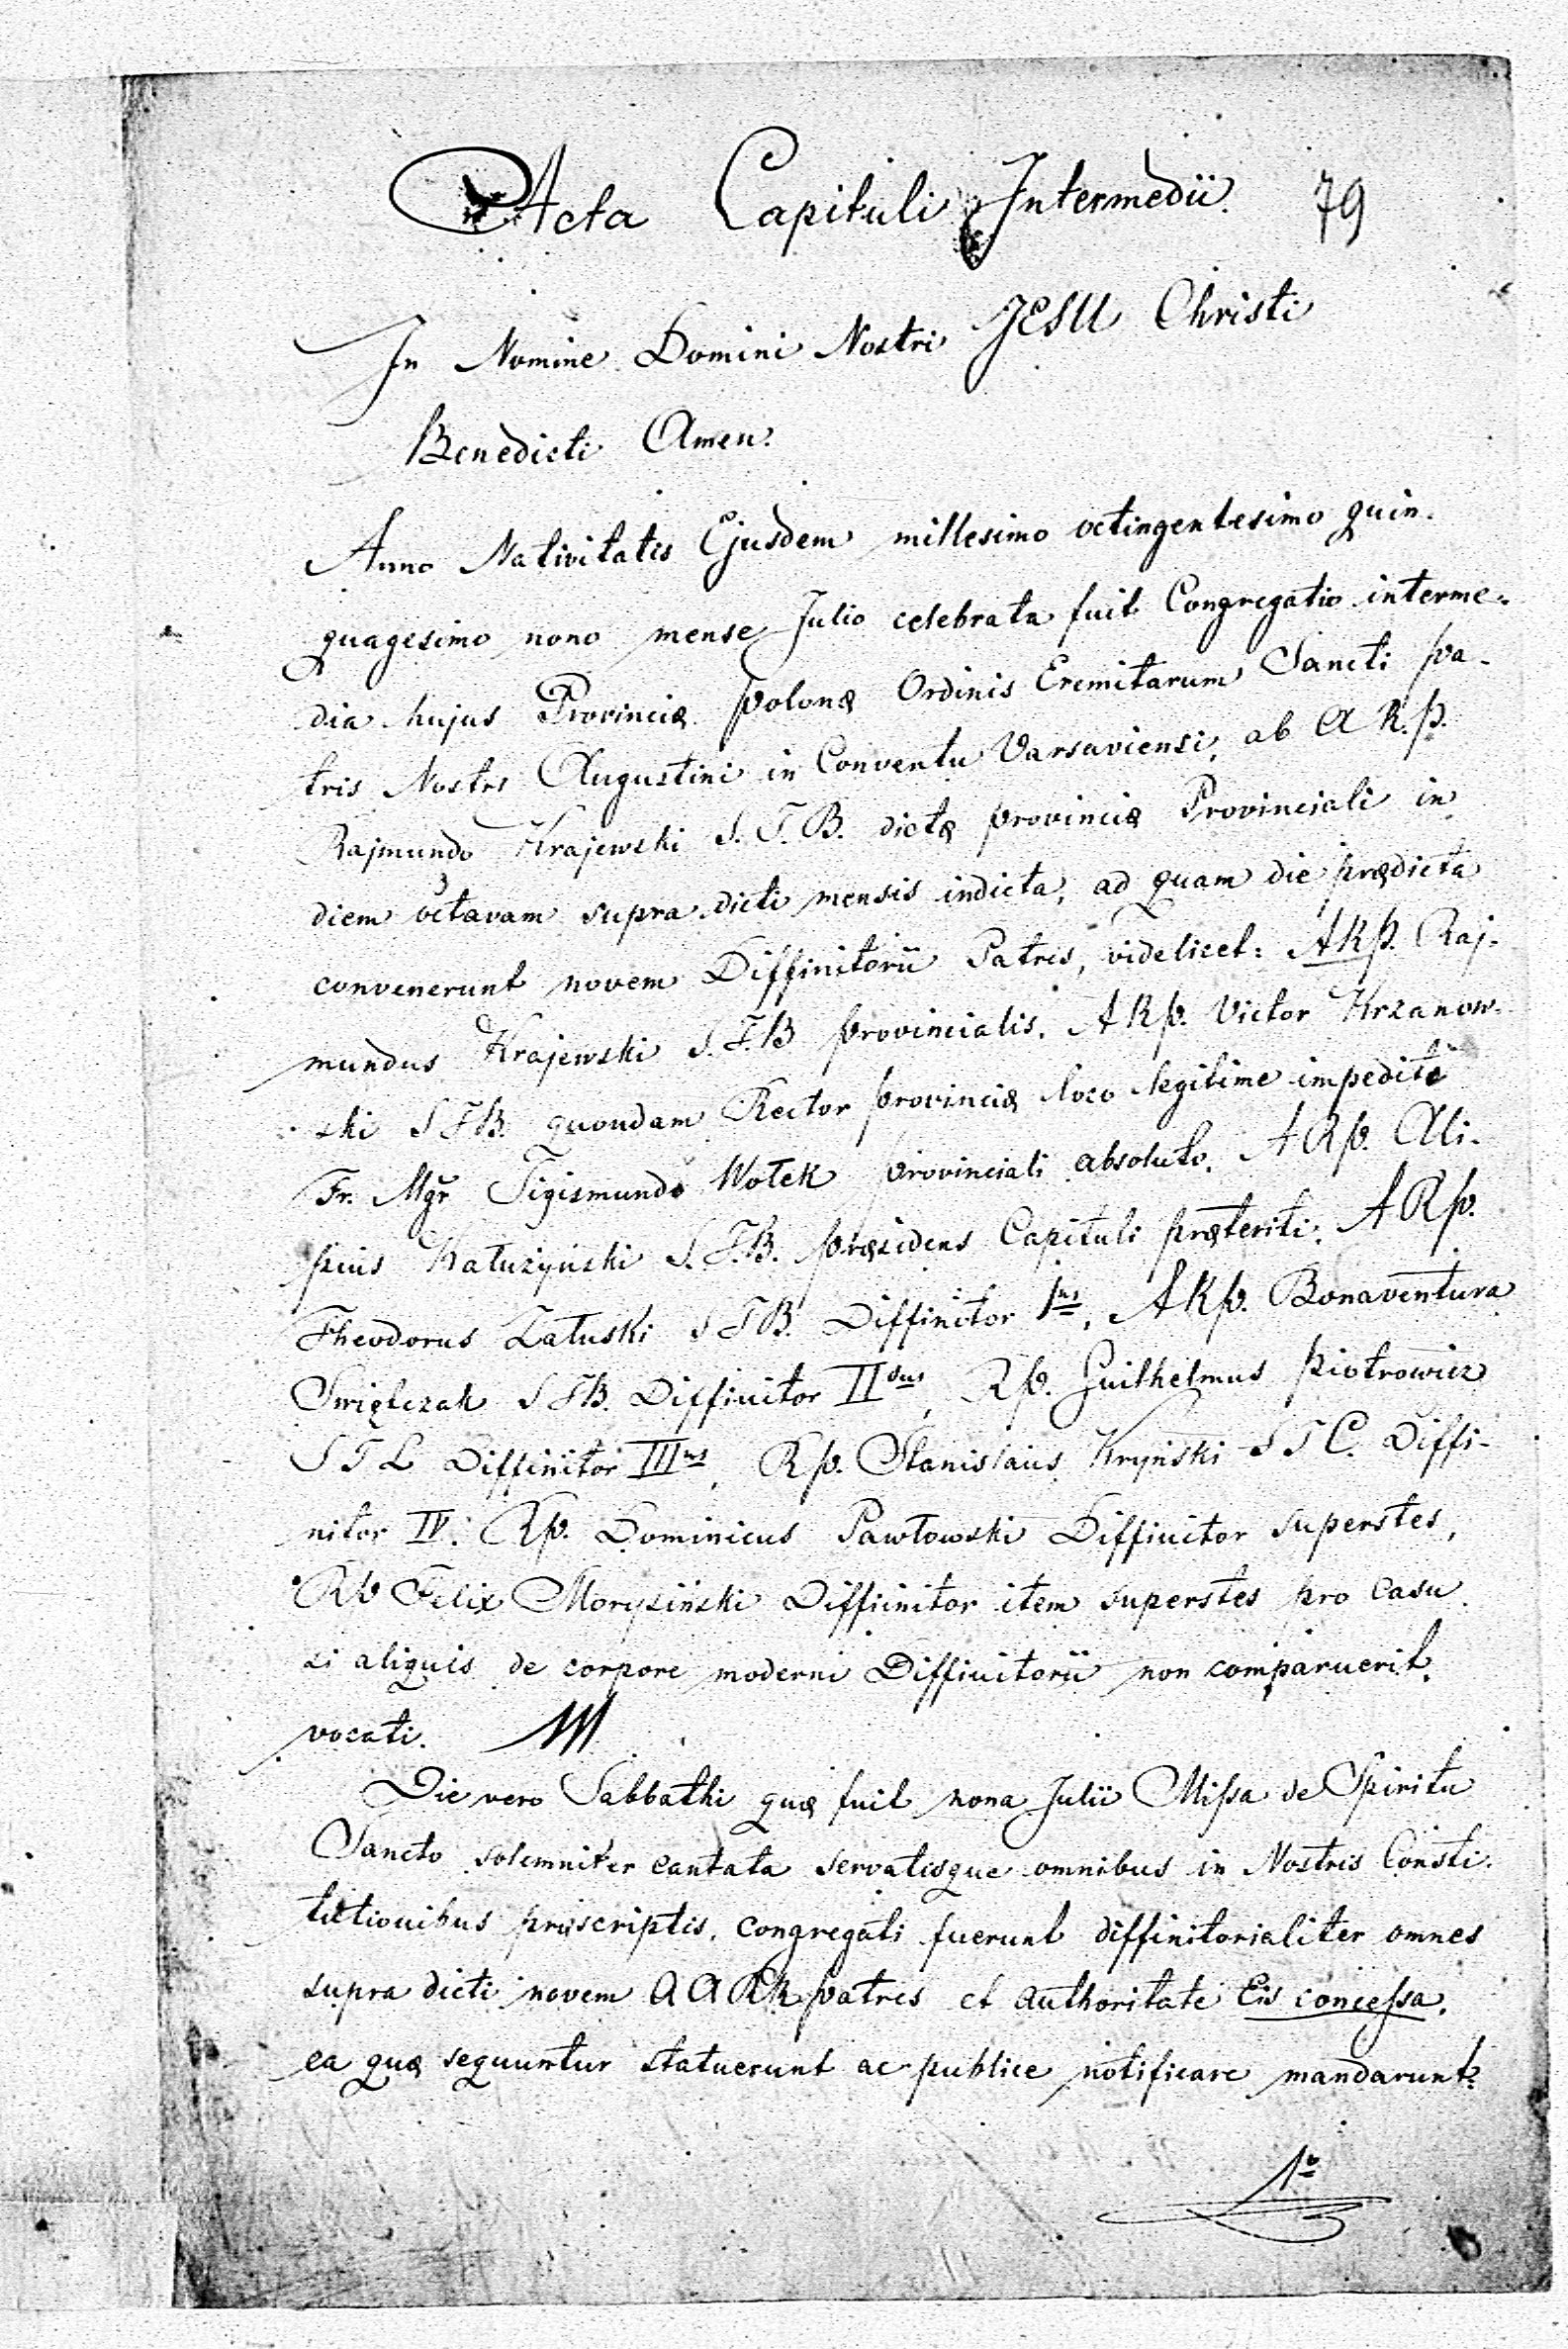 Acta Capituli Intermedii. 79
In Nomine Domini Nostri JESU Christi
Benedicti Amen.
Anno Nativitatis Ejusdem millesimo octingentesimo quin-
quagesimo nono mense Julio celebrata fuit Congregatio interme-
dia hujus Provinciæ Polonæ Ordinis Eremitarum Sancti Pa-
tris Nostri Augustini in Conventu Varsaviensi, ab A R. P.
Rajmundo Krajewski S. T. B. dictæ Provinciæ Provinciali in
diem octavam supra dicti mensis indicta, ad quam die prædicta
convenerunt novem Diffinitorii Patres, videlicet: ARP. Raj-
mundus Krajewski S. T. B Provincialis. A RP. Victor Krzanow-
ski S T B. quondam Rector Provinciæ loco legitime impediti
Fr. Mgr Sigismundo Wołek Provinciali absoluto. A RP. Ali-
pius Kałużyński S. T. B. Præsidens Capituli præteriti. A RP.
Theodorus Załuski S T B. Diffinitor Ius, A RP. Bonaventura
Swiętczak S T B. Diffinitor IIdus, RP. Guilhelmus Piotrowicz
S T L Diffinitor IIIus, RP. Stanislaus Kryński S T C. Diffi-
nitor IV. RP. Dominicus Pawłowski Diffinitor superstes,
RP Felix Moryziński Diffinitor item superstes pro casu
si aliquis de corpore moderni Diffinitorii non comparuerit,
vocati.
Die vero Sabbathi quæ fuit nona Julii Missa de Spiritu
Sancto solemniter cantata servatisque omnibus in Nostris Consti-
tutionibus præscriptis, congregati fuerunt diffinitorialiter omnes
supra dicti novem A A R R Patres et authoritate Eis concessa,
ea quæ sequuntur statuerunt ac publice notificare mandarunt.
1o